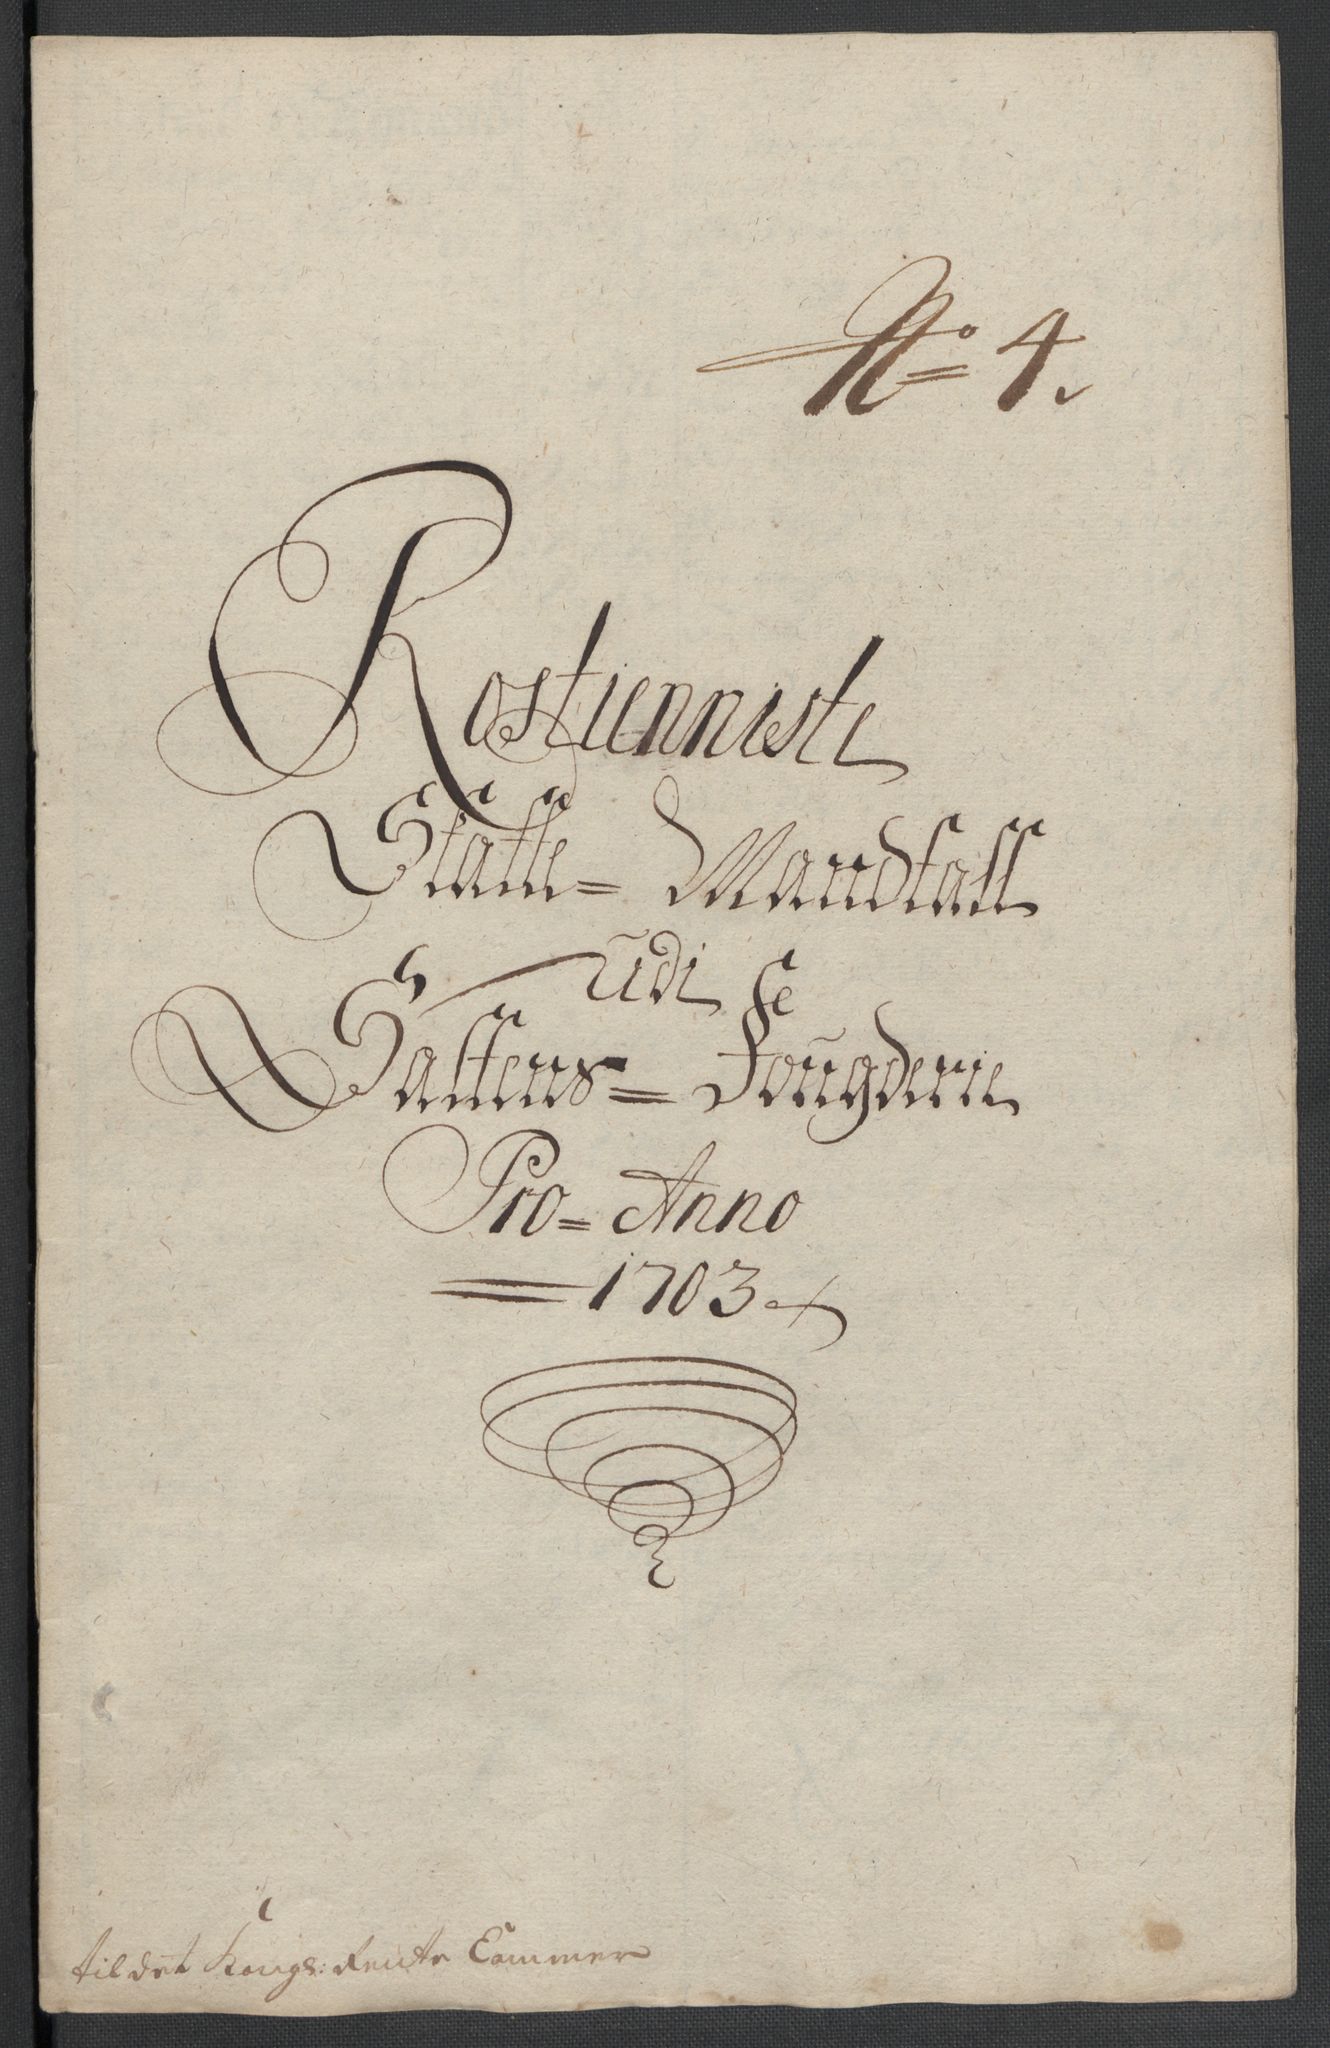 No 4.
Rostienniste
Skatte= Mandtall
udi
Saltens= Fougderie
Pro= Anno
1703
til det Kongl: Rente Cammer